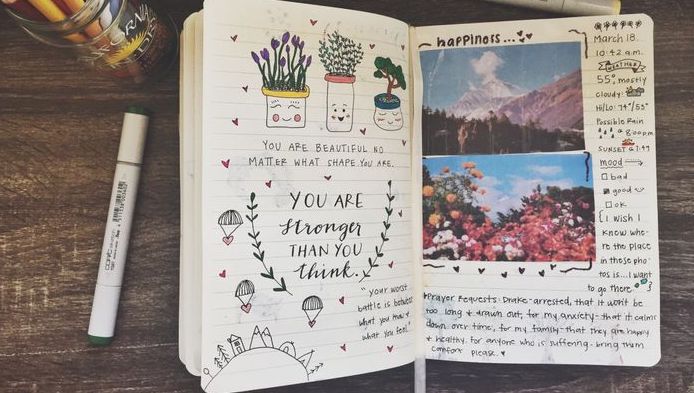 YOU ARE BEAUTIFUL NO
MATTER WHAT SHAPE YOU ARE.
YOU ARE
stronger
THAN YOU
think.
"your worst
battle is between
what you know &
what you feel"
happiness...
March 18.
10:42 a.m.
WEATHER
55°, mostly
cloudy.
Hi/Lo: 74°/55°
Possible Rain
@ 8:00pm
SUNSET @ 7:49
mood
bad
good
ok
{I wish I
knew whe-
re the place
in these pho-
tos is... I want
to go there }
Prayer Requests: Drake-arrested, that it won't be
too long & drawn out, for my anxiety-that it calms
down over time, for my family-that they are happy
& healthy. for anyone who is suffering. bring them
comfort please.